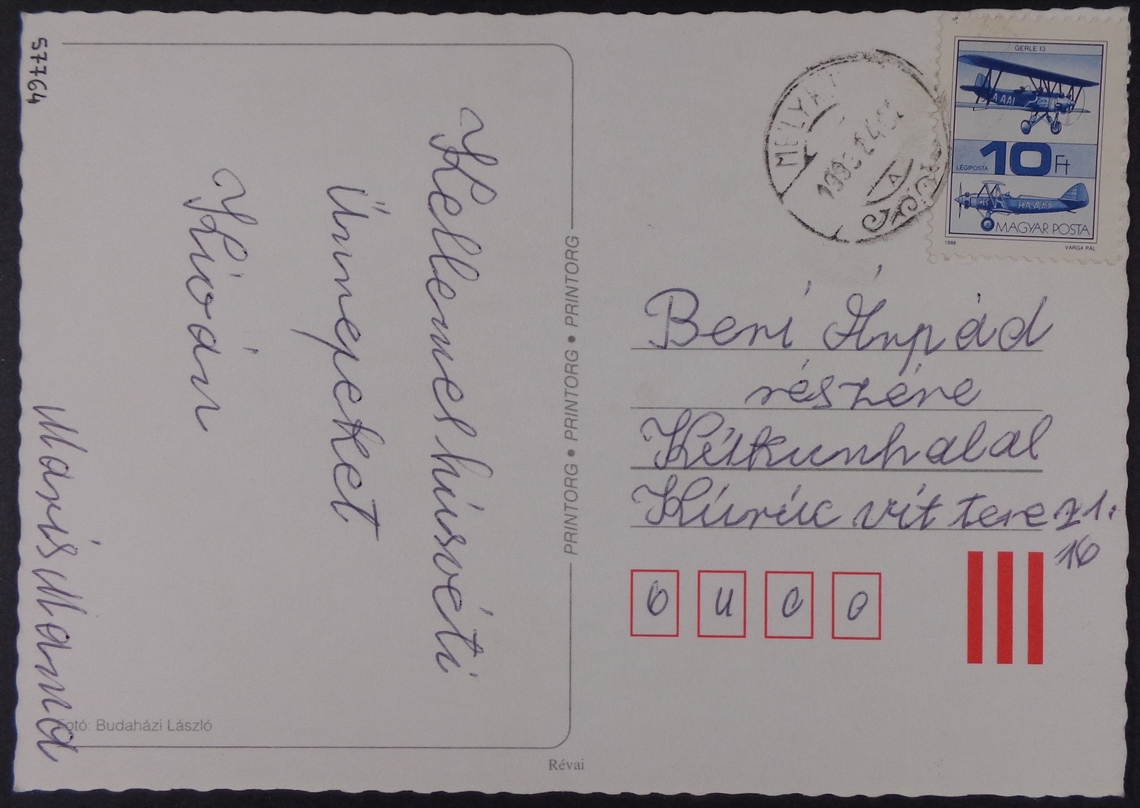 57764
Kellemes húsvéti
Ünnepeket
Kíván
Maris Mama
Fotó: Budaházi László
PRINTORG • PRINTORG • PRINTORG
Révai
GERLE 13
LÉGIPOSTA
10 Ft
HA-AAI
MAGYAR POSTA
1988
VARGA PÁL
Beri Árpád
részére
Kiskunhalas
Kúrúc vit tere 21.
16